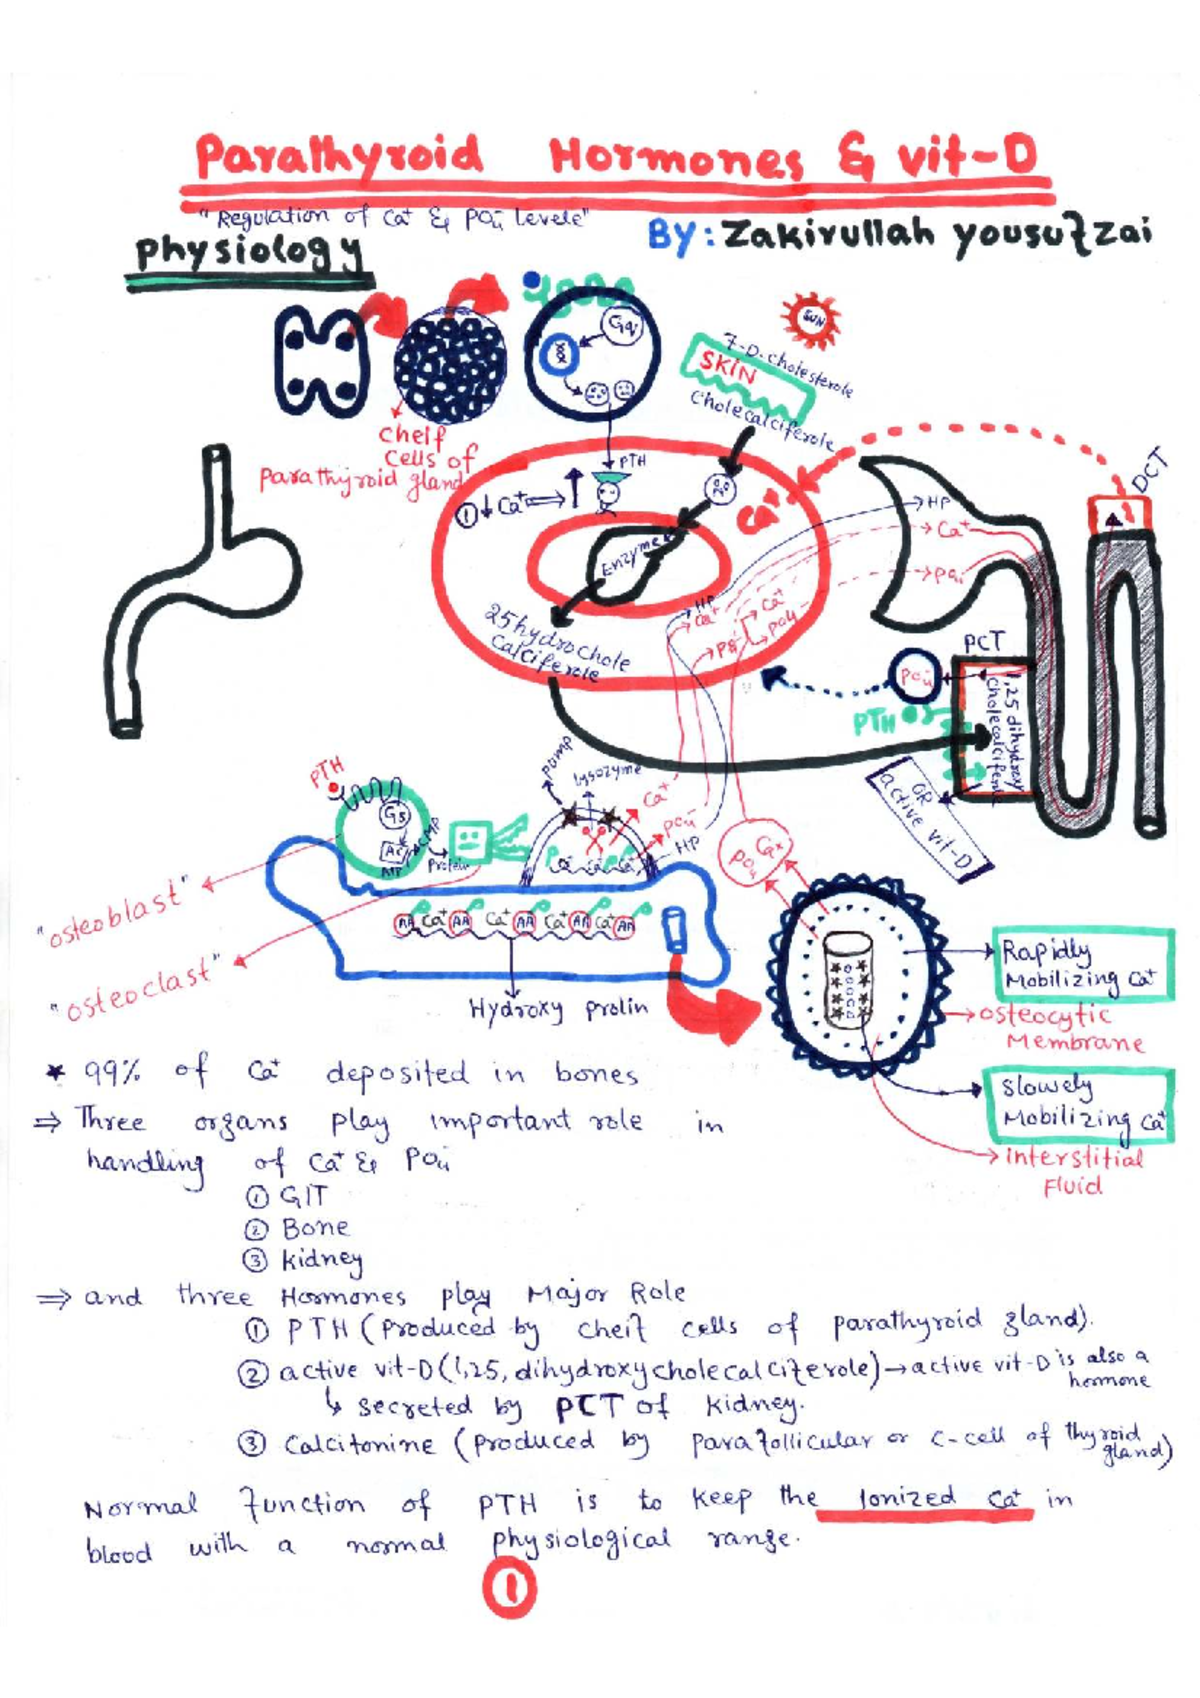 Parathyroid Hormones & vit-D
"Regulation of Ca+ & PO4 Levele"
By: Zakirullah yousufzai
Physiology
SUN
7-D-cholesterole
SKIN
Cholecalciferole
Gq
cheif
cells of
parathyroid gland
PTH
① ↓ Ca+ ⇒ ↑
Ca+
Enzyme
25 hydrochole
calciferole
HP
Ca+
PO4
Ca+
PO4
HP
Ca+
PO4
DCT
PCT
PO4
PTH
1,25 dihydroxy
cholecalciferole
OR
active vit-D
PTH
Gs
AC
cMP
Protein
Pump
Lysozyme
Ca+
PO4
HP
Ca+ Ca+ Ca+
"osteoblast"
"osteoclast"
AA Ca+ AA Ca+ AA Ca+ AA Ca+ AA
Hydroxy prolin
PO4 Ca+
Rapidly
Mobilizing Ca+
→osteocytic
Membrane
Slowely
Mobilizing Ca+
→interstitial
Fluid
* 99% of Ca+ deposited in bones
⇒ Three organs play important role in
handling of Ca+ & PO4
① GIT
② Bone
③ kidney
⇒ and three Hormones play Major Role
① PTH (Produced by cheif cells of parathyroid gland).
② active vit-D (1,25, dihydroxycholecalciferole)→active vit-D is also a
hormone
↳ secreted by PCT of kidney.
③ Calcitonine (produced by parafollicular or C-cell of thyroid
gland)
Normal function of PTH is to keep the Ionized Ca+ in
blood with a normal physiological range.
1